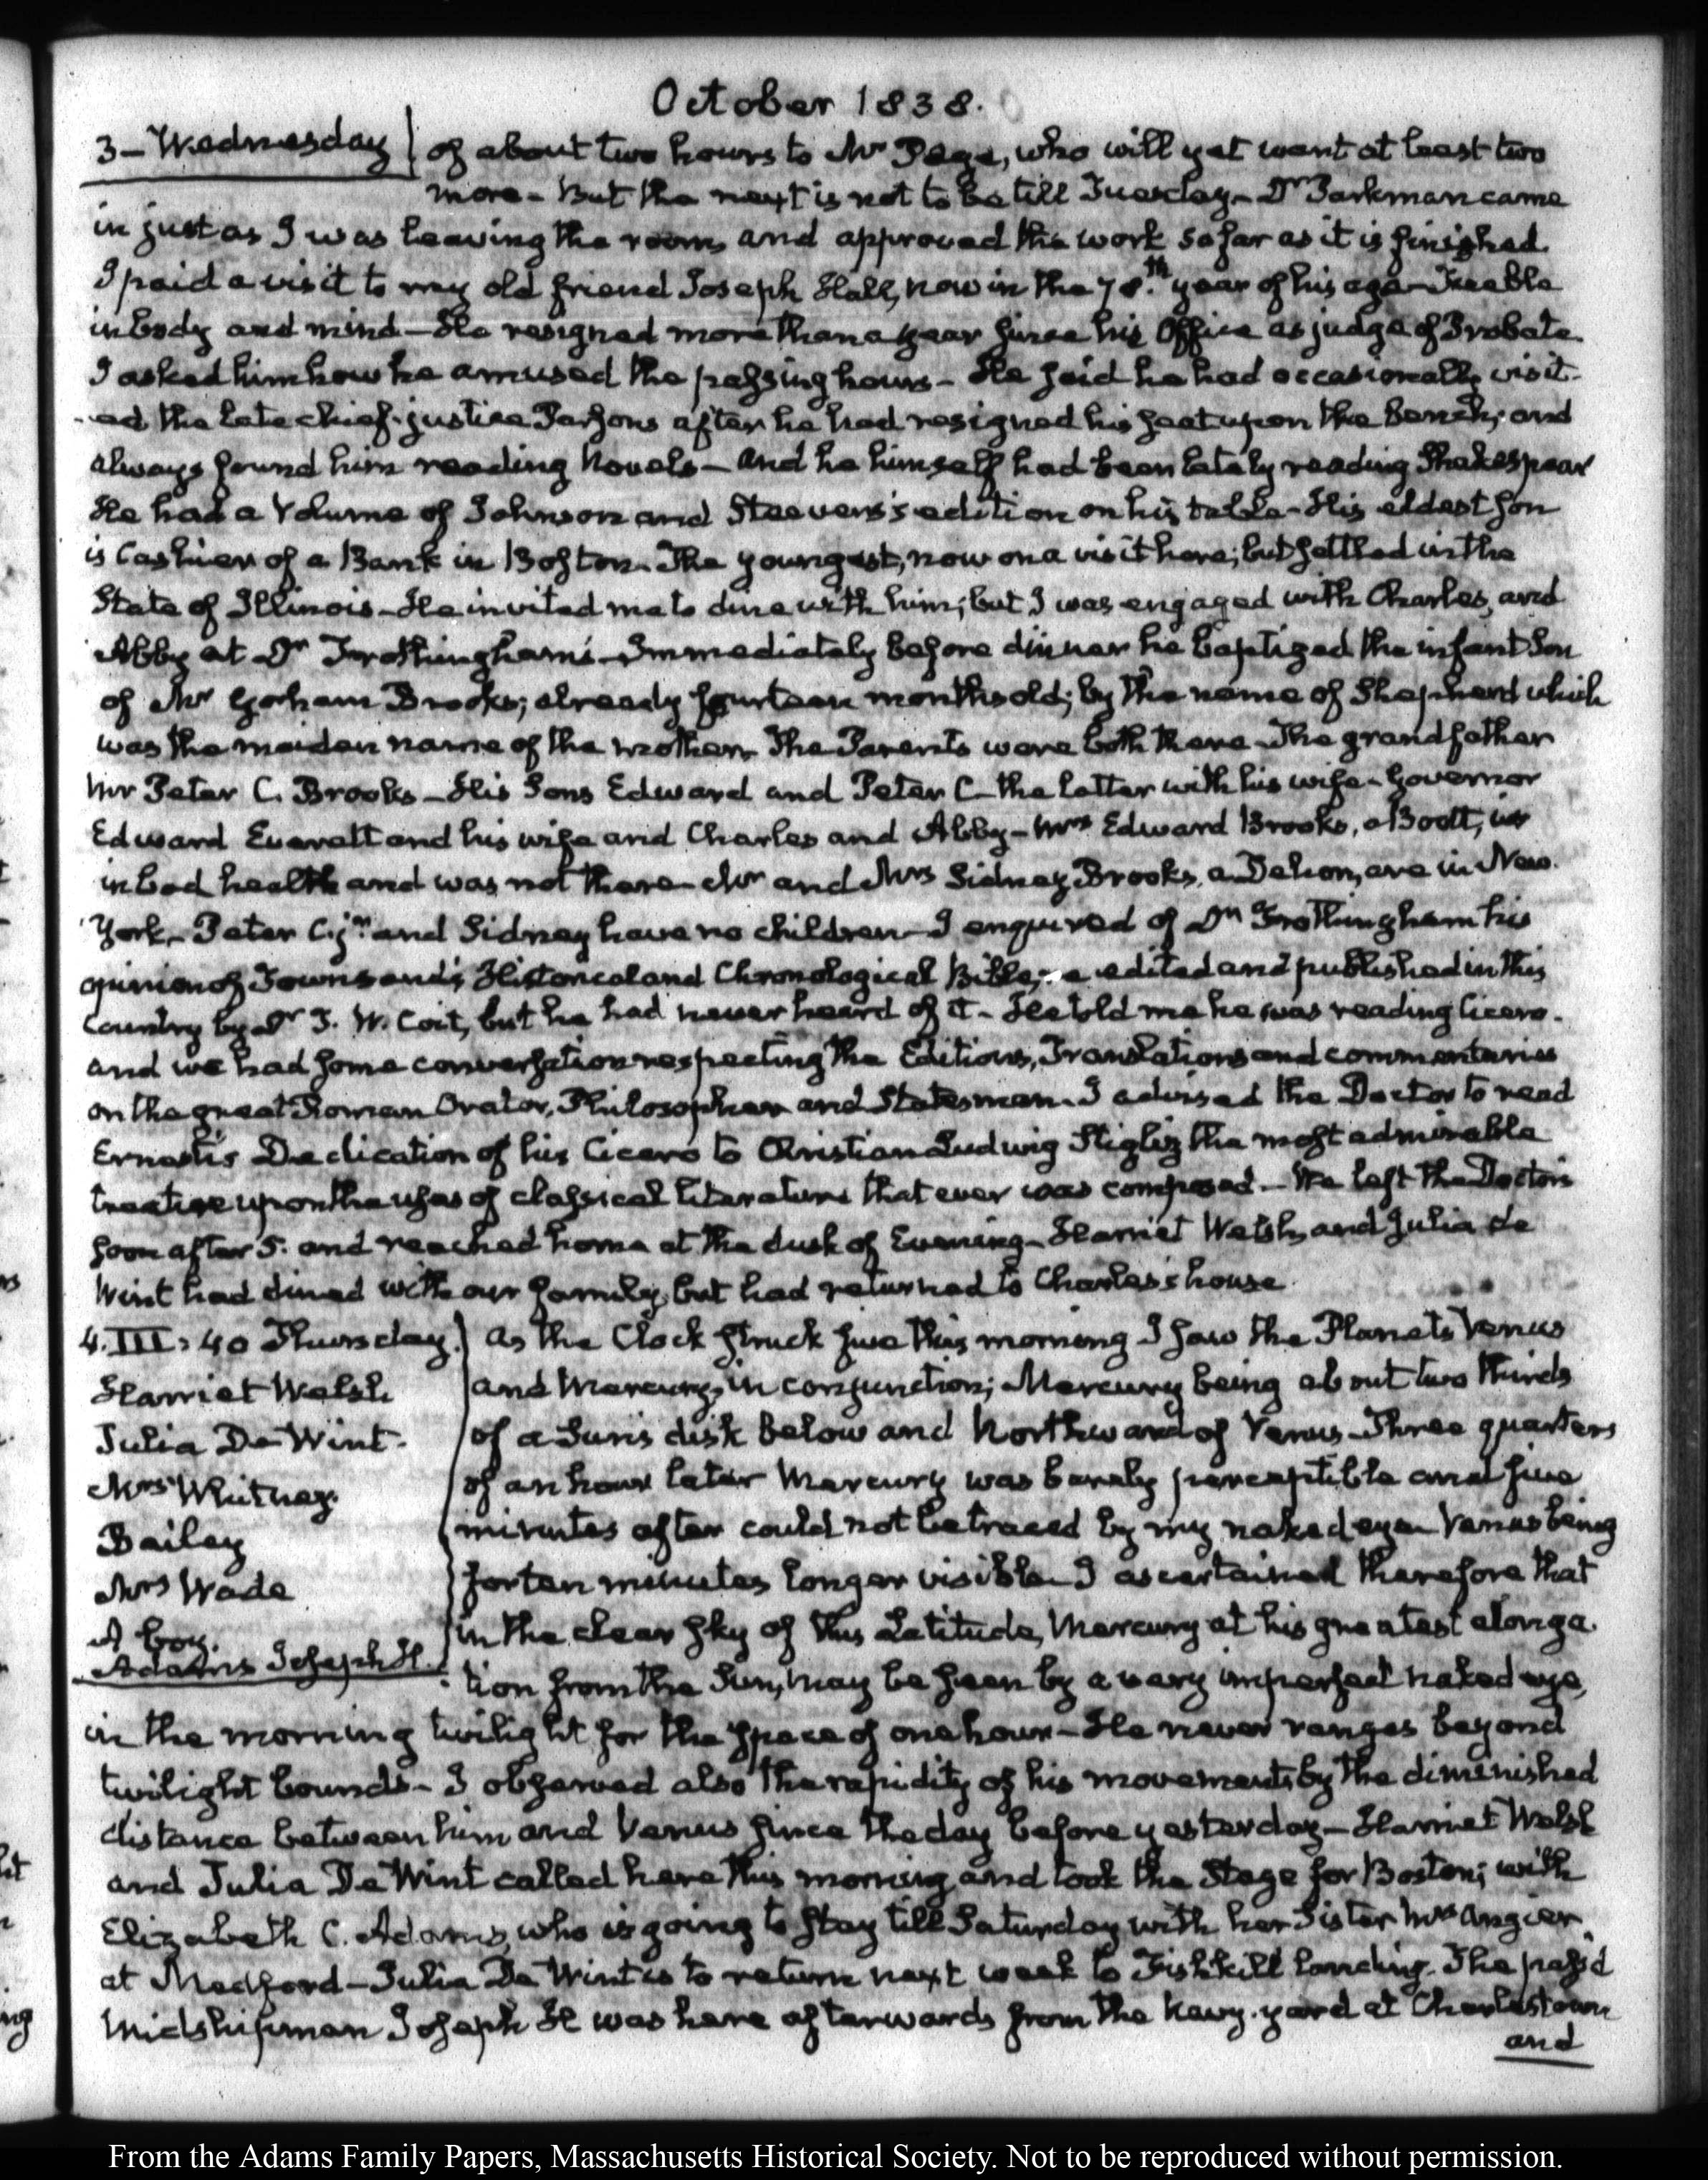 October 1838.
3 – Wednesday
of about two hours to Mr Page, who will yet want at least two
more – But the next is not to be till Tuesday – Dr Parkman came
in just as I was leaving the room, and approved the work so far as it is finished
I paid a visit to my old friend Joseph Hall, now in the 78.th year of his age – Feeble
in body and mind – He resigned more than a year since his Office as judge of Probate.
I asked him how he amused the passing hours – He said he had occasionally visit-
-ed the late chief-justice Parsons after he had resigned his seat upon the Bench; and
always found him reading Novels – and he himself had been lately reading Shakespear
He had a Volume of Johnson and Steevens's edition on his table – His eldest son
is Cashier of a Bank in Boston. The youngest, now on a visit here; but settled in the
State of Illinois – He invited me to dine with him; but I was engaged with Charles, and
Abby at Dr Frothingham's – Immediately before dinner he baptized the infant Son
of Mr Gorham Brooks; already fourteen months old; by the name of Shepherd which
was the maiden name of the mother. The Parents were both there – The grandfather
Mr Peter C. Brooks – His Sons Edward and Peter C – the latter with his wife – Governor
Edward Everett and his wife and Charles and Abby – Mrs Edward Brooks, a Boott, is
in bad health and was not there – Mr and Mrs Sidney Brooks, a Dehon, are in New.
York – Peter C. jr. and Sidney have no children – I enquired of Dr Frothingham his
opinion of Townsend's Historical and Chronological Bible; edited and published in this
Country by Dr T. W. Coit, but he had never heard of it – He told me he was reading Cicero.
and we had some conversation respecting the Editions, Translations and commentaries
on the great Roman Orator, Philosopher and Statesman. I advised the Doctor to read
Ernesti's Dedication of his Cicero to Christian Ludwig Stigliz the most admirable
treatise upon the uses of classical literature that ever was composed – We left the Doctor's
soon after 5. and reached home at the dusk of Evening – Harriet Welsh, and Julia de
Wint had dined with our family, but had returned to Charles's house
4. III: 40 Thursday.
Harriet Welsh
Julia De Wint.
Mrs Whitney.
Bailey
Mrs Wade
A boy.
Adams Joseph H.
As the Clock struck five this morning I saw the Planets Venus
and Mercury, in conjunction; Mercury being about two thirds
of a Sun's disk below and Northward of Venus – Three quarters
of an hour later Mercury was barely perceptible and five
minutes after could not be traced by my naked eye – Venus being
for ten minutes longer visible – I ascertained therefore that
in the clear sky of this Latitude, Mercury at his greatest elonga.
tion from the Sun, may be seen by a very imperfect naked eye,
in the morning twilight for the space of one hour – He never ranges beyond
twilight bounds – I observed also the rapidity of his movements by the diminished
distance between him and Venus since the day before yesterday – Harriet Welsh
and Julia De Wint called here this morning, and took the Stage for Boston; with
Elizabeth C. Adams, who is going to stay till Saturday with her Sister Mrs Angier
at Medford – Julia De Wint is to return next week to Fishkill landing. The pass'd
Midshipman Joseph H was here afterwards from the Navy-yard at Charlestown
and
From the Adams Family Papers, Massachusetts Historical Society. Not to be reproduced without permission.